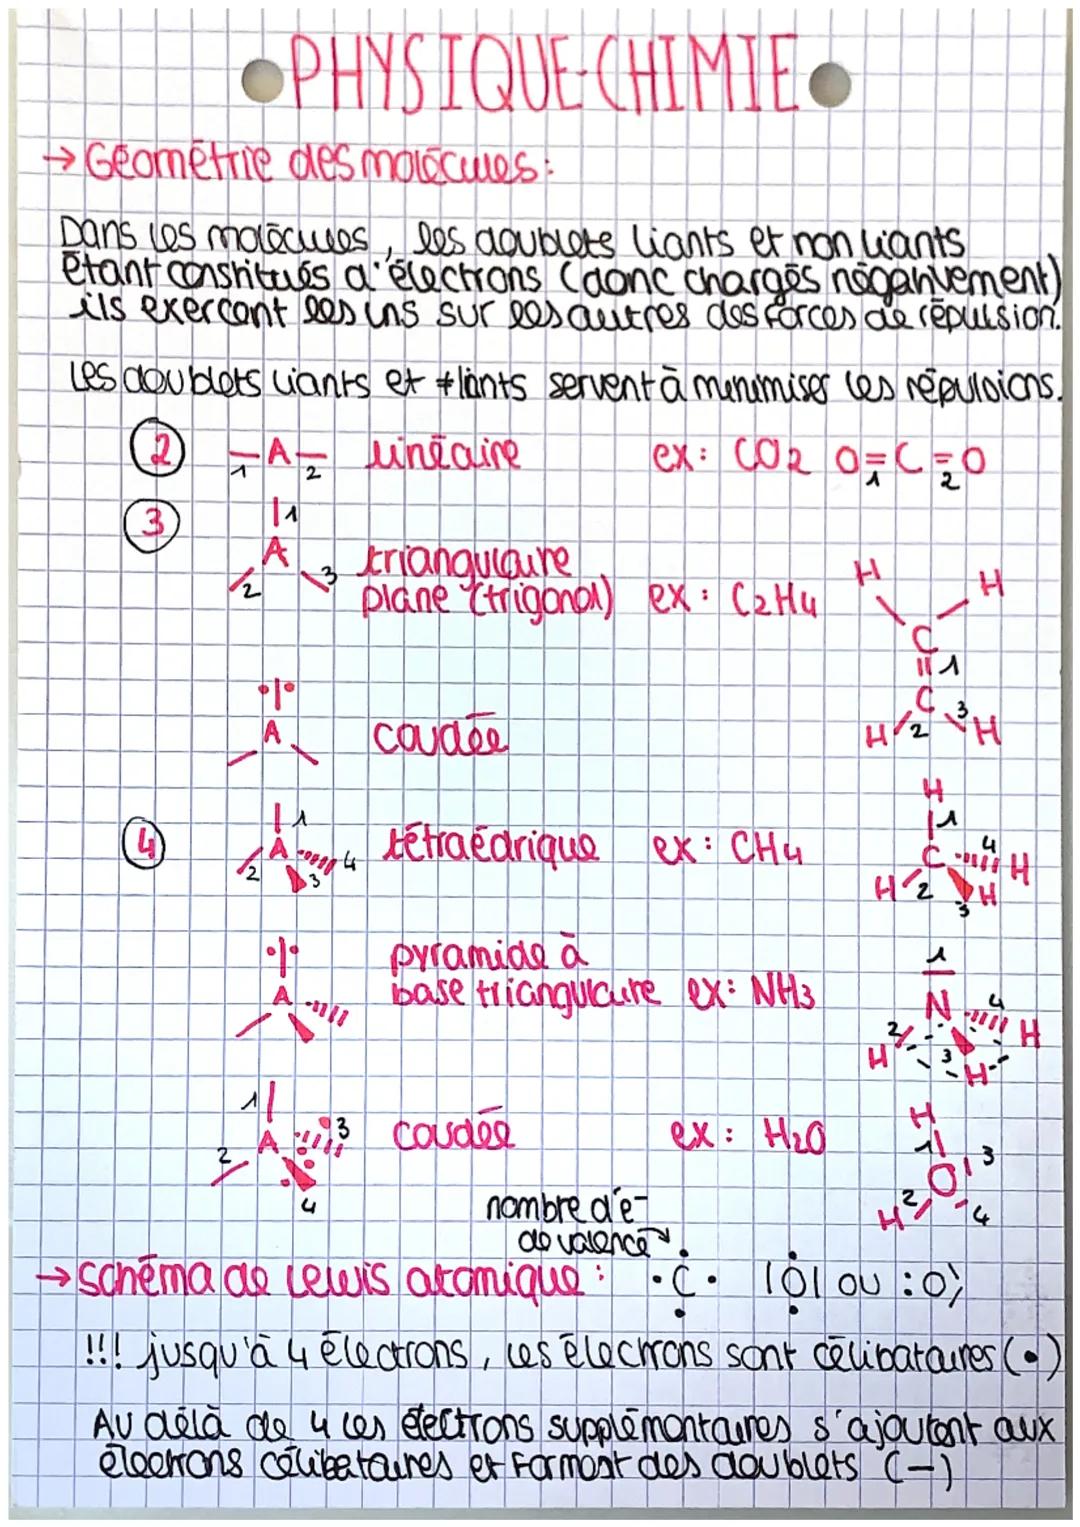 PHYSIQUE-CHIMIE
→ Géométrie des molécules :
Dans les molécules, les doublets liants et non liants
étant constitués d'électrons (donc chargés négativement)
ils exercent les uns sur les autres des forces de répulsion.
Les doublets liants et ≠liants servent à minimiser les répulsions.
2 — A — linéaire ex: CO2 O=C=O
1 2 1 2
3 A 1 2 3 triangulaire
plane (trigonal) ex: C2H4
H H C 1 C H 2 3 H
A coudée
4 A 1 2 3 4 tétraédrique ex: CH4
H 1 C 4 H H 2 3 H
A pyramide à
base triangulaire ex: NH3
1 N 4 H 2 H 3 H
1 A 3 2 4 coudée ex: H2O
H 1 O 3 H 2 4
nombre d'e-
de valence
→ schéma de Lewis atomique : ·C· |O| ou :O:
!!! jusqu'à 4 électrons, les électrons sont célibataires (•)
Au delà de 4 les électrons supplémentaires s'ajoutent aux
électrons célibataires et forment des doublets (—)